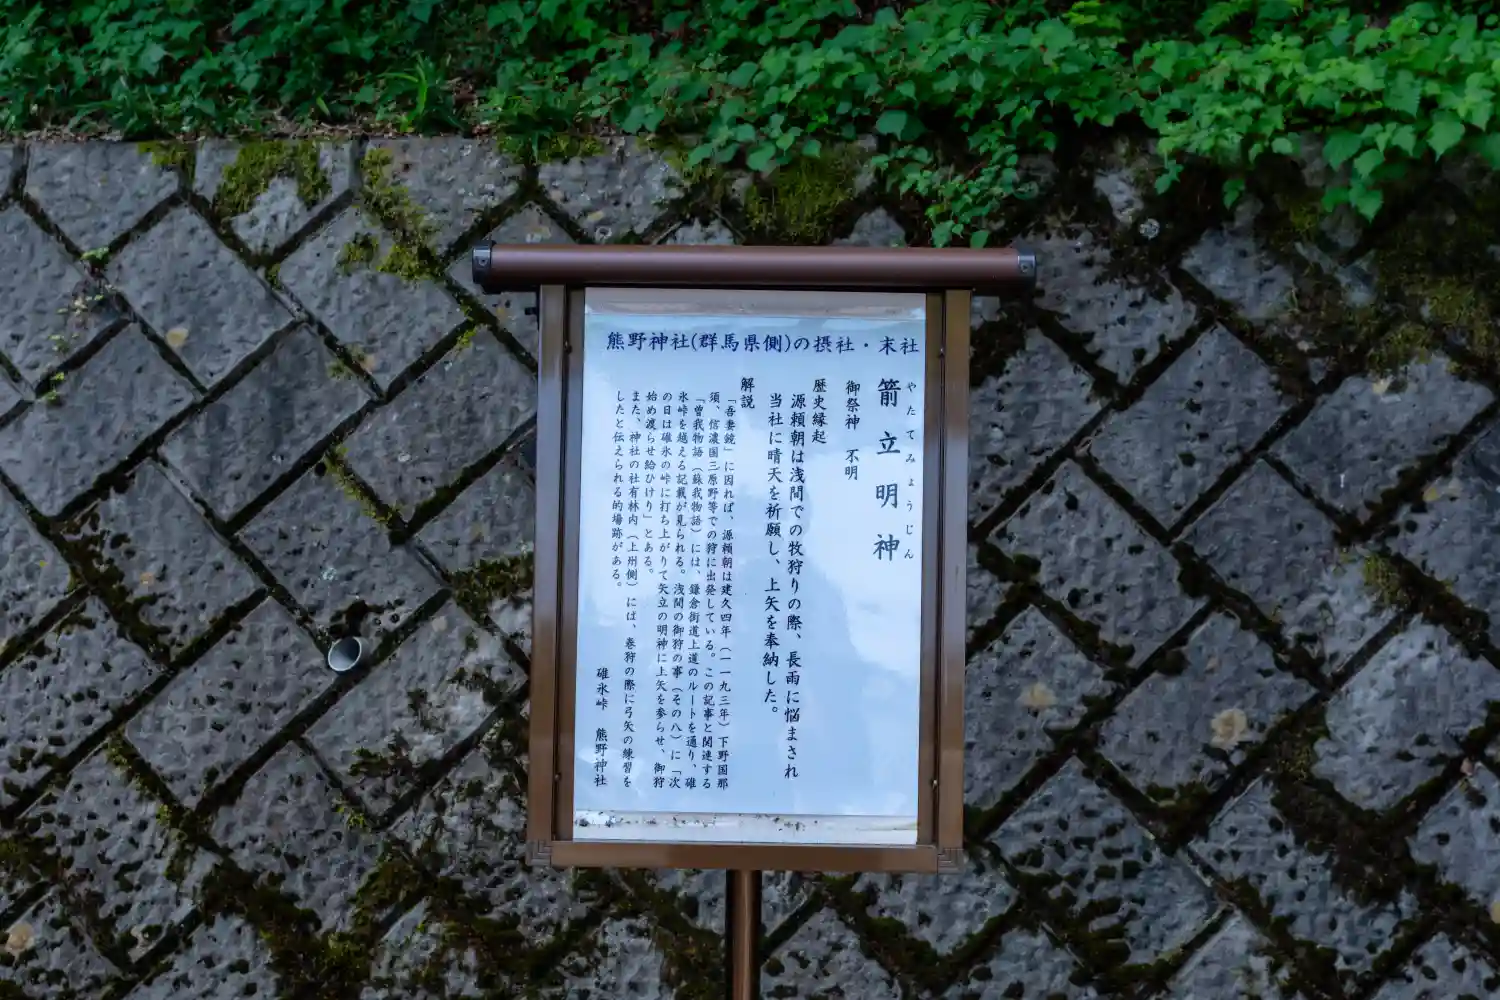 熊野神社(群馬県側)の摂社・末社
やたてみょうじん
箭立明神
御祭神 不明
歴史縁起
源頼朝は浅間での牧狩りの際、長雨に悩まされ
当社に晴天を祈願し、上矢を奉納した。
解説
「吾妻鏡」に因れば、源頼朝は建久四年(一一九三年)下野国那
須、信濃国三原野等での狩に出発している。この記事と関連する
「曽我物語(蘇我物語)には、鎌倉街道上道のルートを通り、碓
氷峠を越える記載が見られる。浅間の御狩の事(その八)に「次
の日は碓氷の峠に打ち上がりて矢立の明神に上矢を参らせ、御狩
始め渡らせ給ひけり」とある。
また、神社の社有林内(上州側)には、巻狩の際に弓矢の練習を
したと伝えられる的場跡がある。
碓氷峠 熊野神社